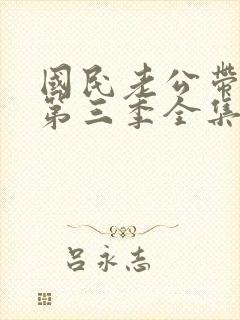 國民老公帶
第三季全集
吕永志